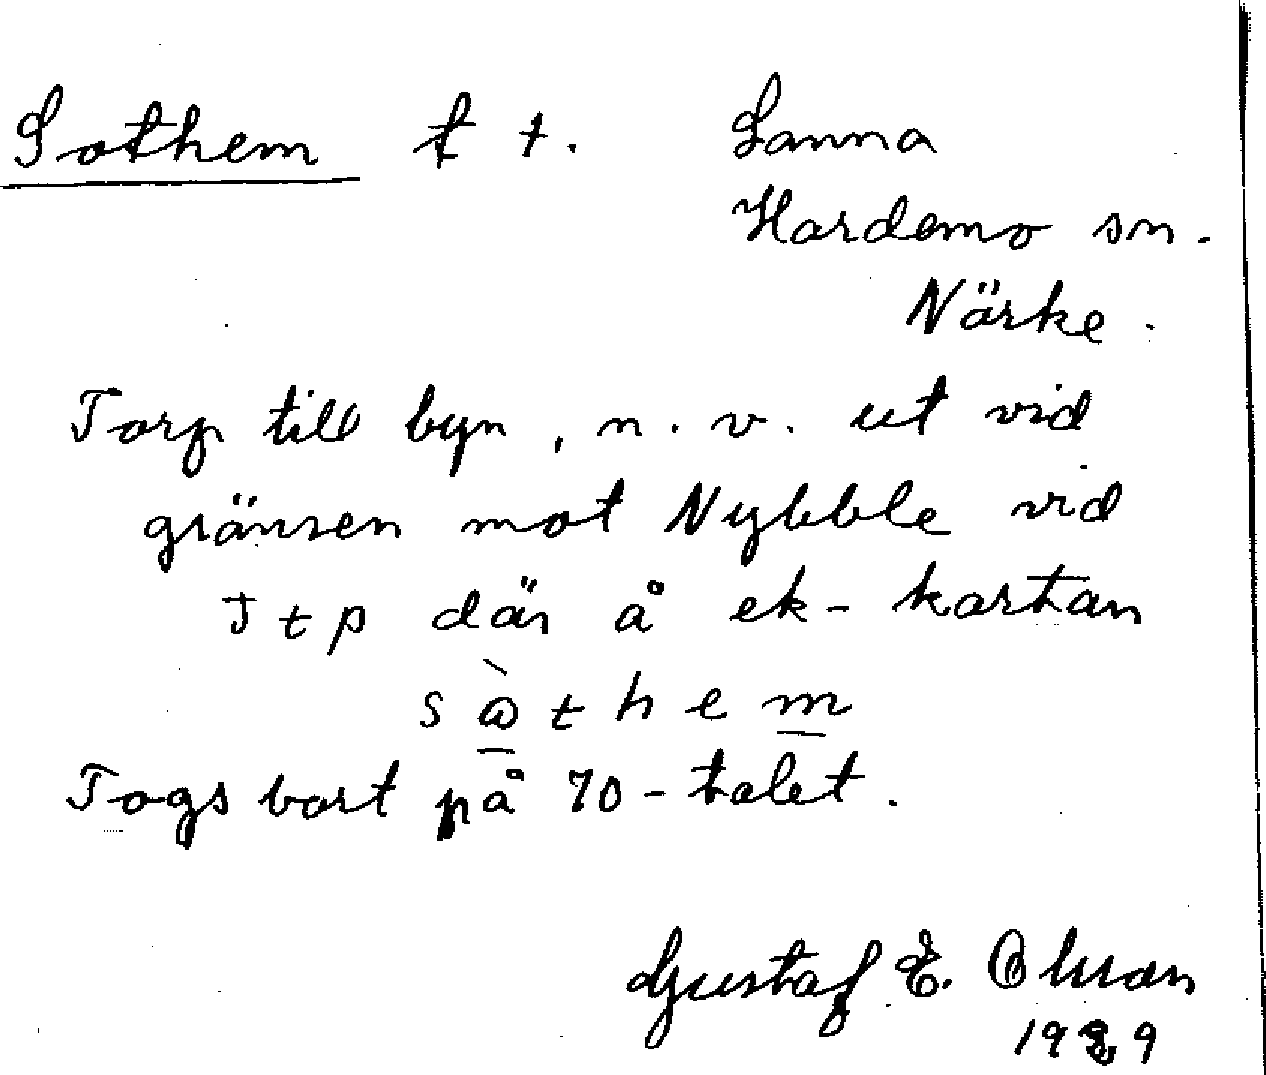 Sothem f t. Sanna
Hardemo sn.
Närke.
Torp till byn, n. v. ut vid
gränsen mot Nybble vid
Ttp där å ek-kartan
sàthem
Togs bort på 70-talet.
Gustaf E. Olsson
19 9